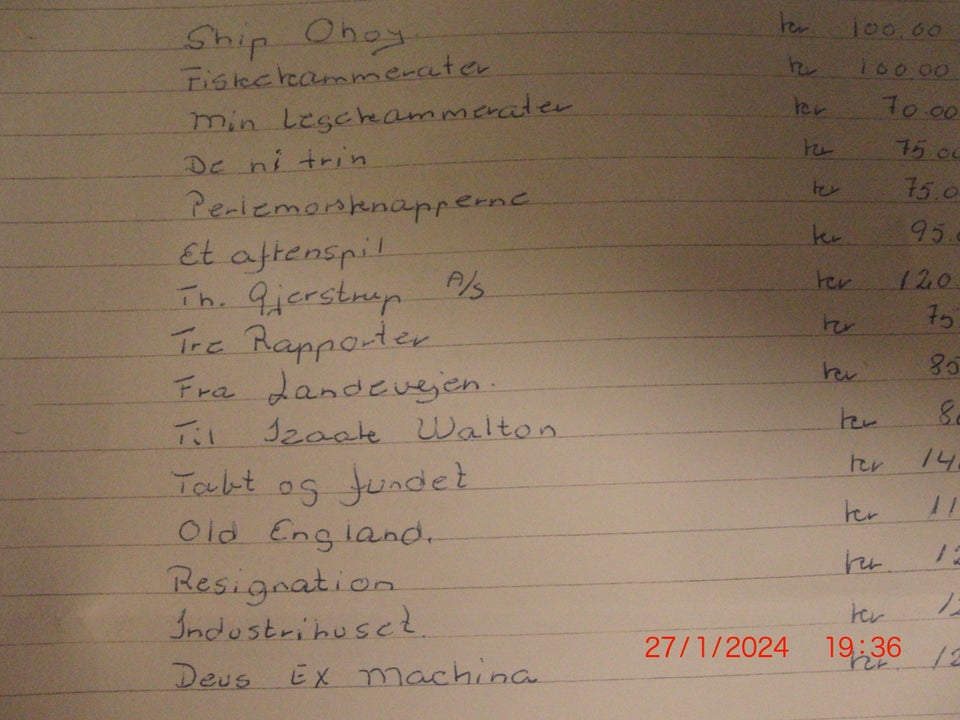 Ship Ohoy kr 100.00
Fiskekammerater kr 100.00
Min Legekammerater kr 70.00
De ni trin kr 75.00
Perlemorsknapperne kr 75.0
Et aftenspil kr 95.
Th. Gjerstrup A/S kr 120.
Tre Rapporter kr 75
Fra Landevejen. kr 85
Til Izaak Walton kr 8
Tabt og fundet kr 14
Old England. kr 11
Resignation kr 12
Industrihuset. kr 12
Deus Ex Machina kr. 12
27/1/2024 19:36